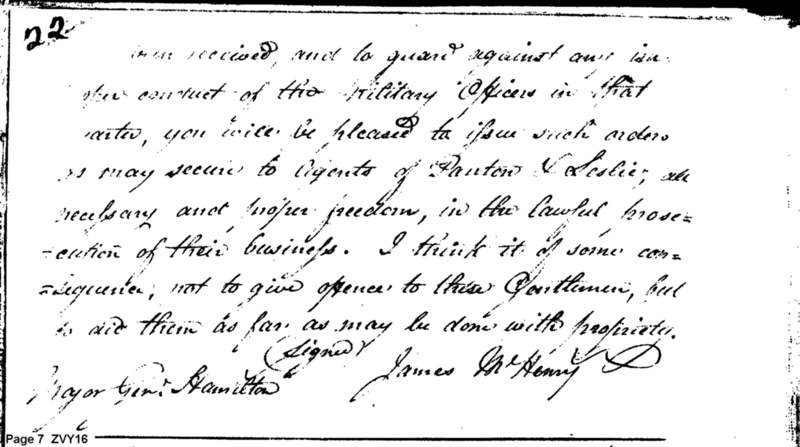 22
been received, and to guard against any im-
proper conduct of the Military Officers in that
quarter, you will be pleased to issue such orders
as may secure to Agents of Panton & Leslie, all
necessary and proper freedom, in the lawful prose=
=cution of their business. I think it of some con=
=sequence, not to give offence to these Gentlemen, but
to aid them as far as may be done with propriety.
(Signed)
James McHenry
Major Genl. Hamilton
Page 7 ZVY16